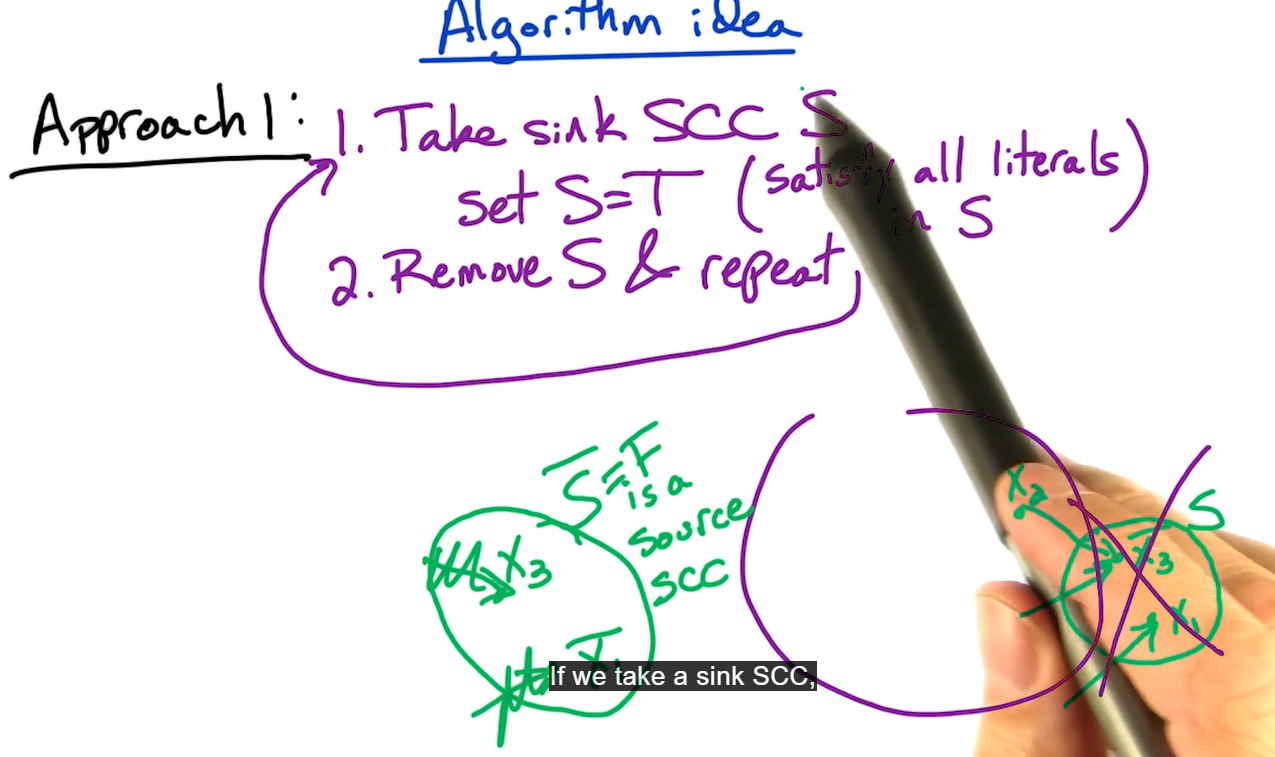 Algorithm idea
Approach 1:
1. Take sink SCC S
set S=T (satisfy all literals
in S)
2. Remove S & repeat
S̅=F
is a
source
SCC
X₃
X̅₁
X₂
S
X̅₃
X₁
If we take a sink SCC,